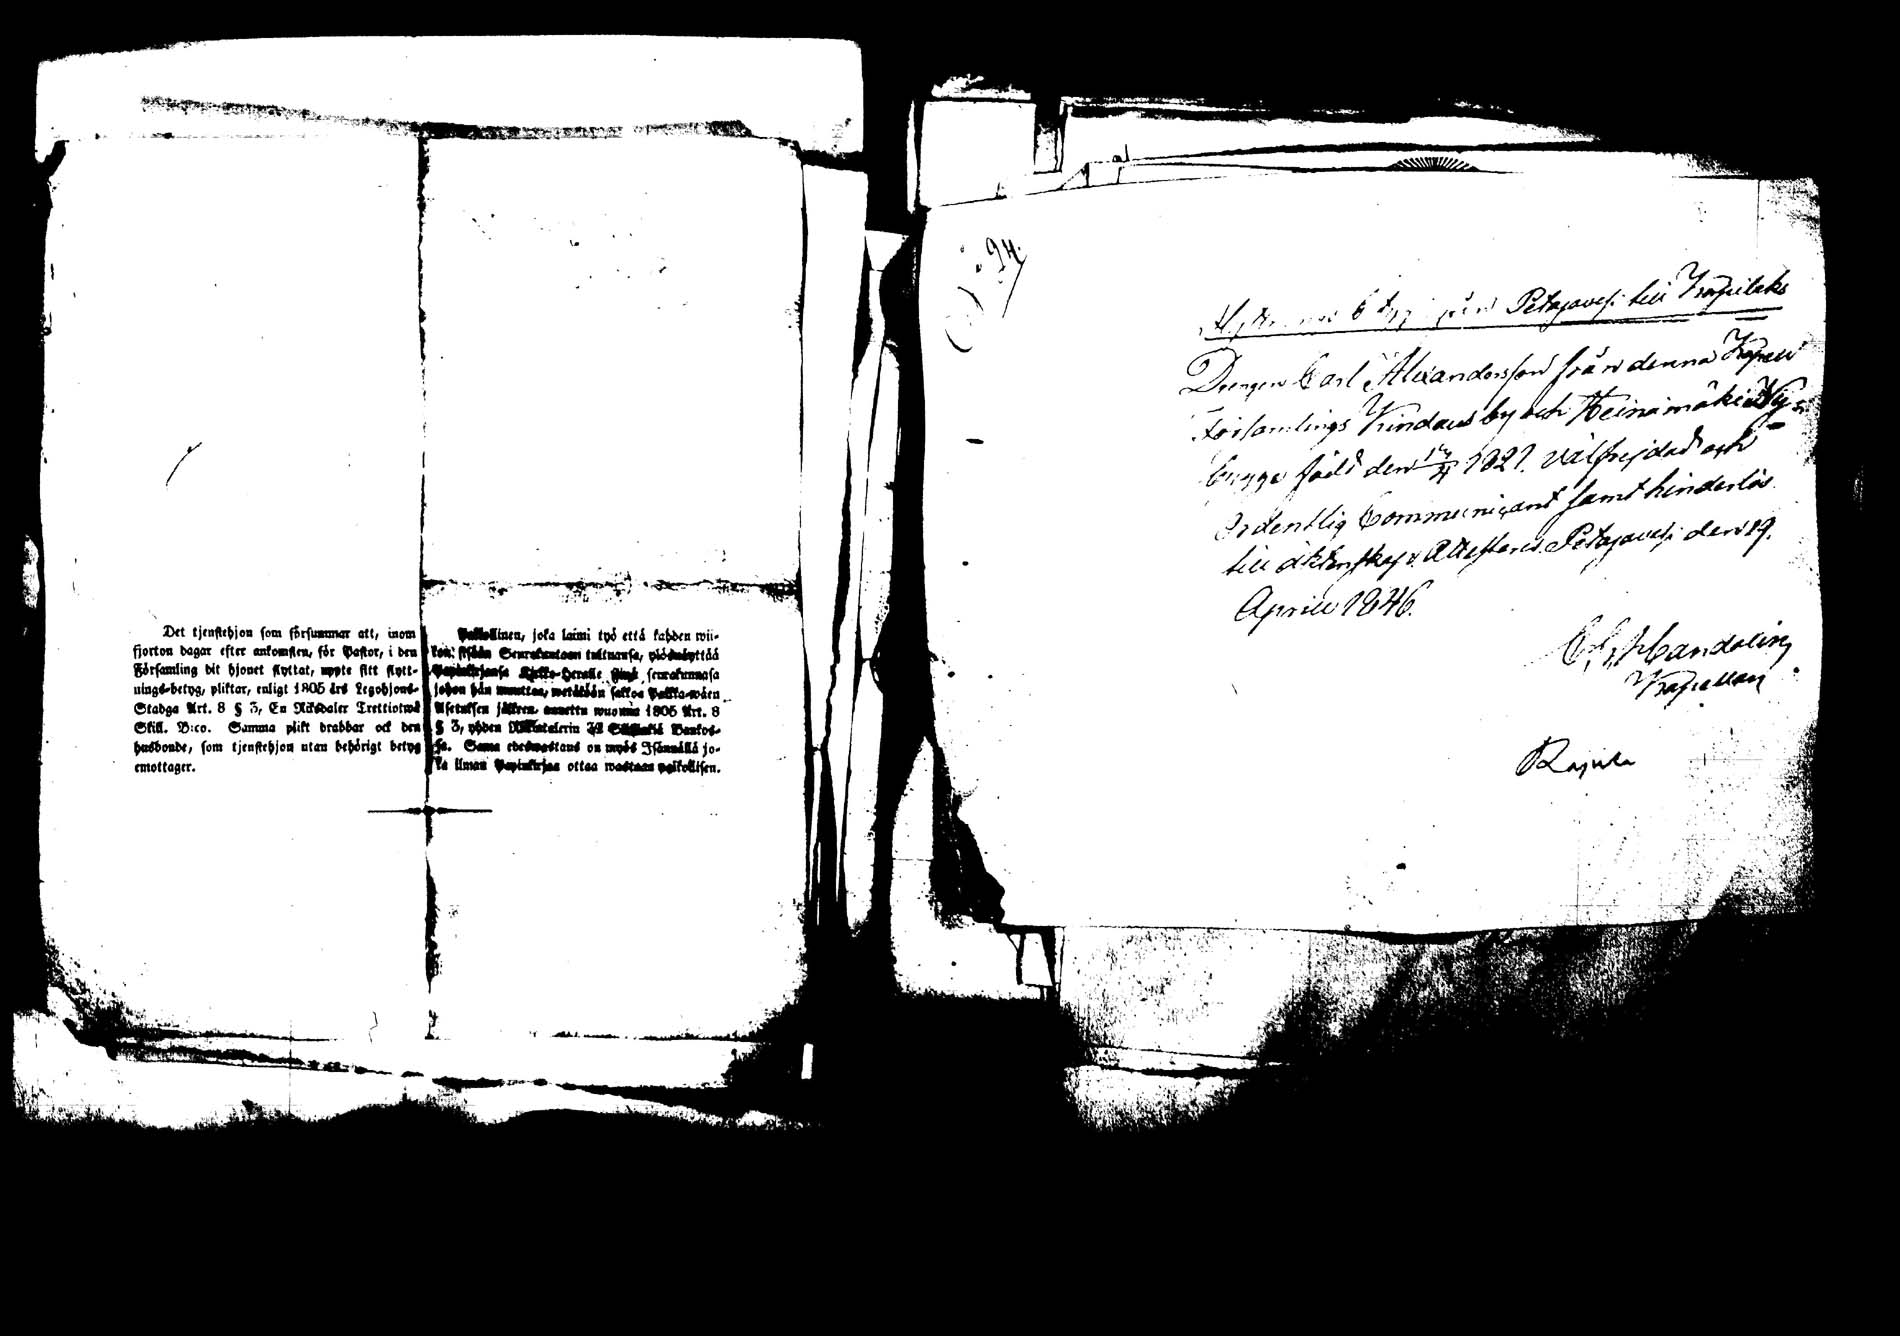 Det tjenstehjon som försummar att, inom
fjorton dagar efter ankomsten, för Pastor, i den
Församling dit hjonet flyttat, uppte sitt flytt-
nings-betyg, pliktar, enligt 1805 års Legohjons-
Stadga Art. 8 § 3, En Riksdaler Trettiotwå
Skill. B:co. Samma plikt drabbar ock den
husbonde, som tjenstehjon utan behörigt betyg
emottager.
Palkollinen, joka laimi lyö että kahden wii-
kon sisään Seurakuntaan tultuansa, ylösnäyttää
Papinkirjansa Kirkko-Herralle siinä seurakunnasa
johon hän muuttaa, wetäköön sakkoa Palkka-wäen
Asetuksen jälkeen annettu wuonna 1805 Art. 8
§ 3, yhden Riikintalerin 32 Skillinkiä Bankos-
sa. Sama edeswastaus on myös Isännällä jo-
ka ilman Papinkirjaa ottaa wastaan palkollisen.
94.
Petäjävesi till
Drengen Carl Alexandersson från denna Kapell
Församlings Kindaus by och Heinämäki Ny-
bygge född den 1821. välfrejdad och
Ordentlig Communicant samt hinderlös
till äktenskap. Attesteras Petäjävesi den 19.
April 1846.
Kapellan